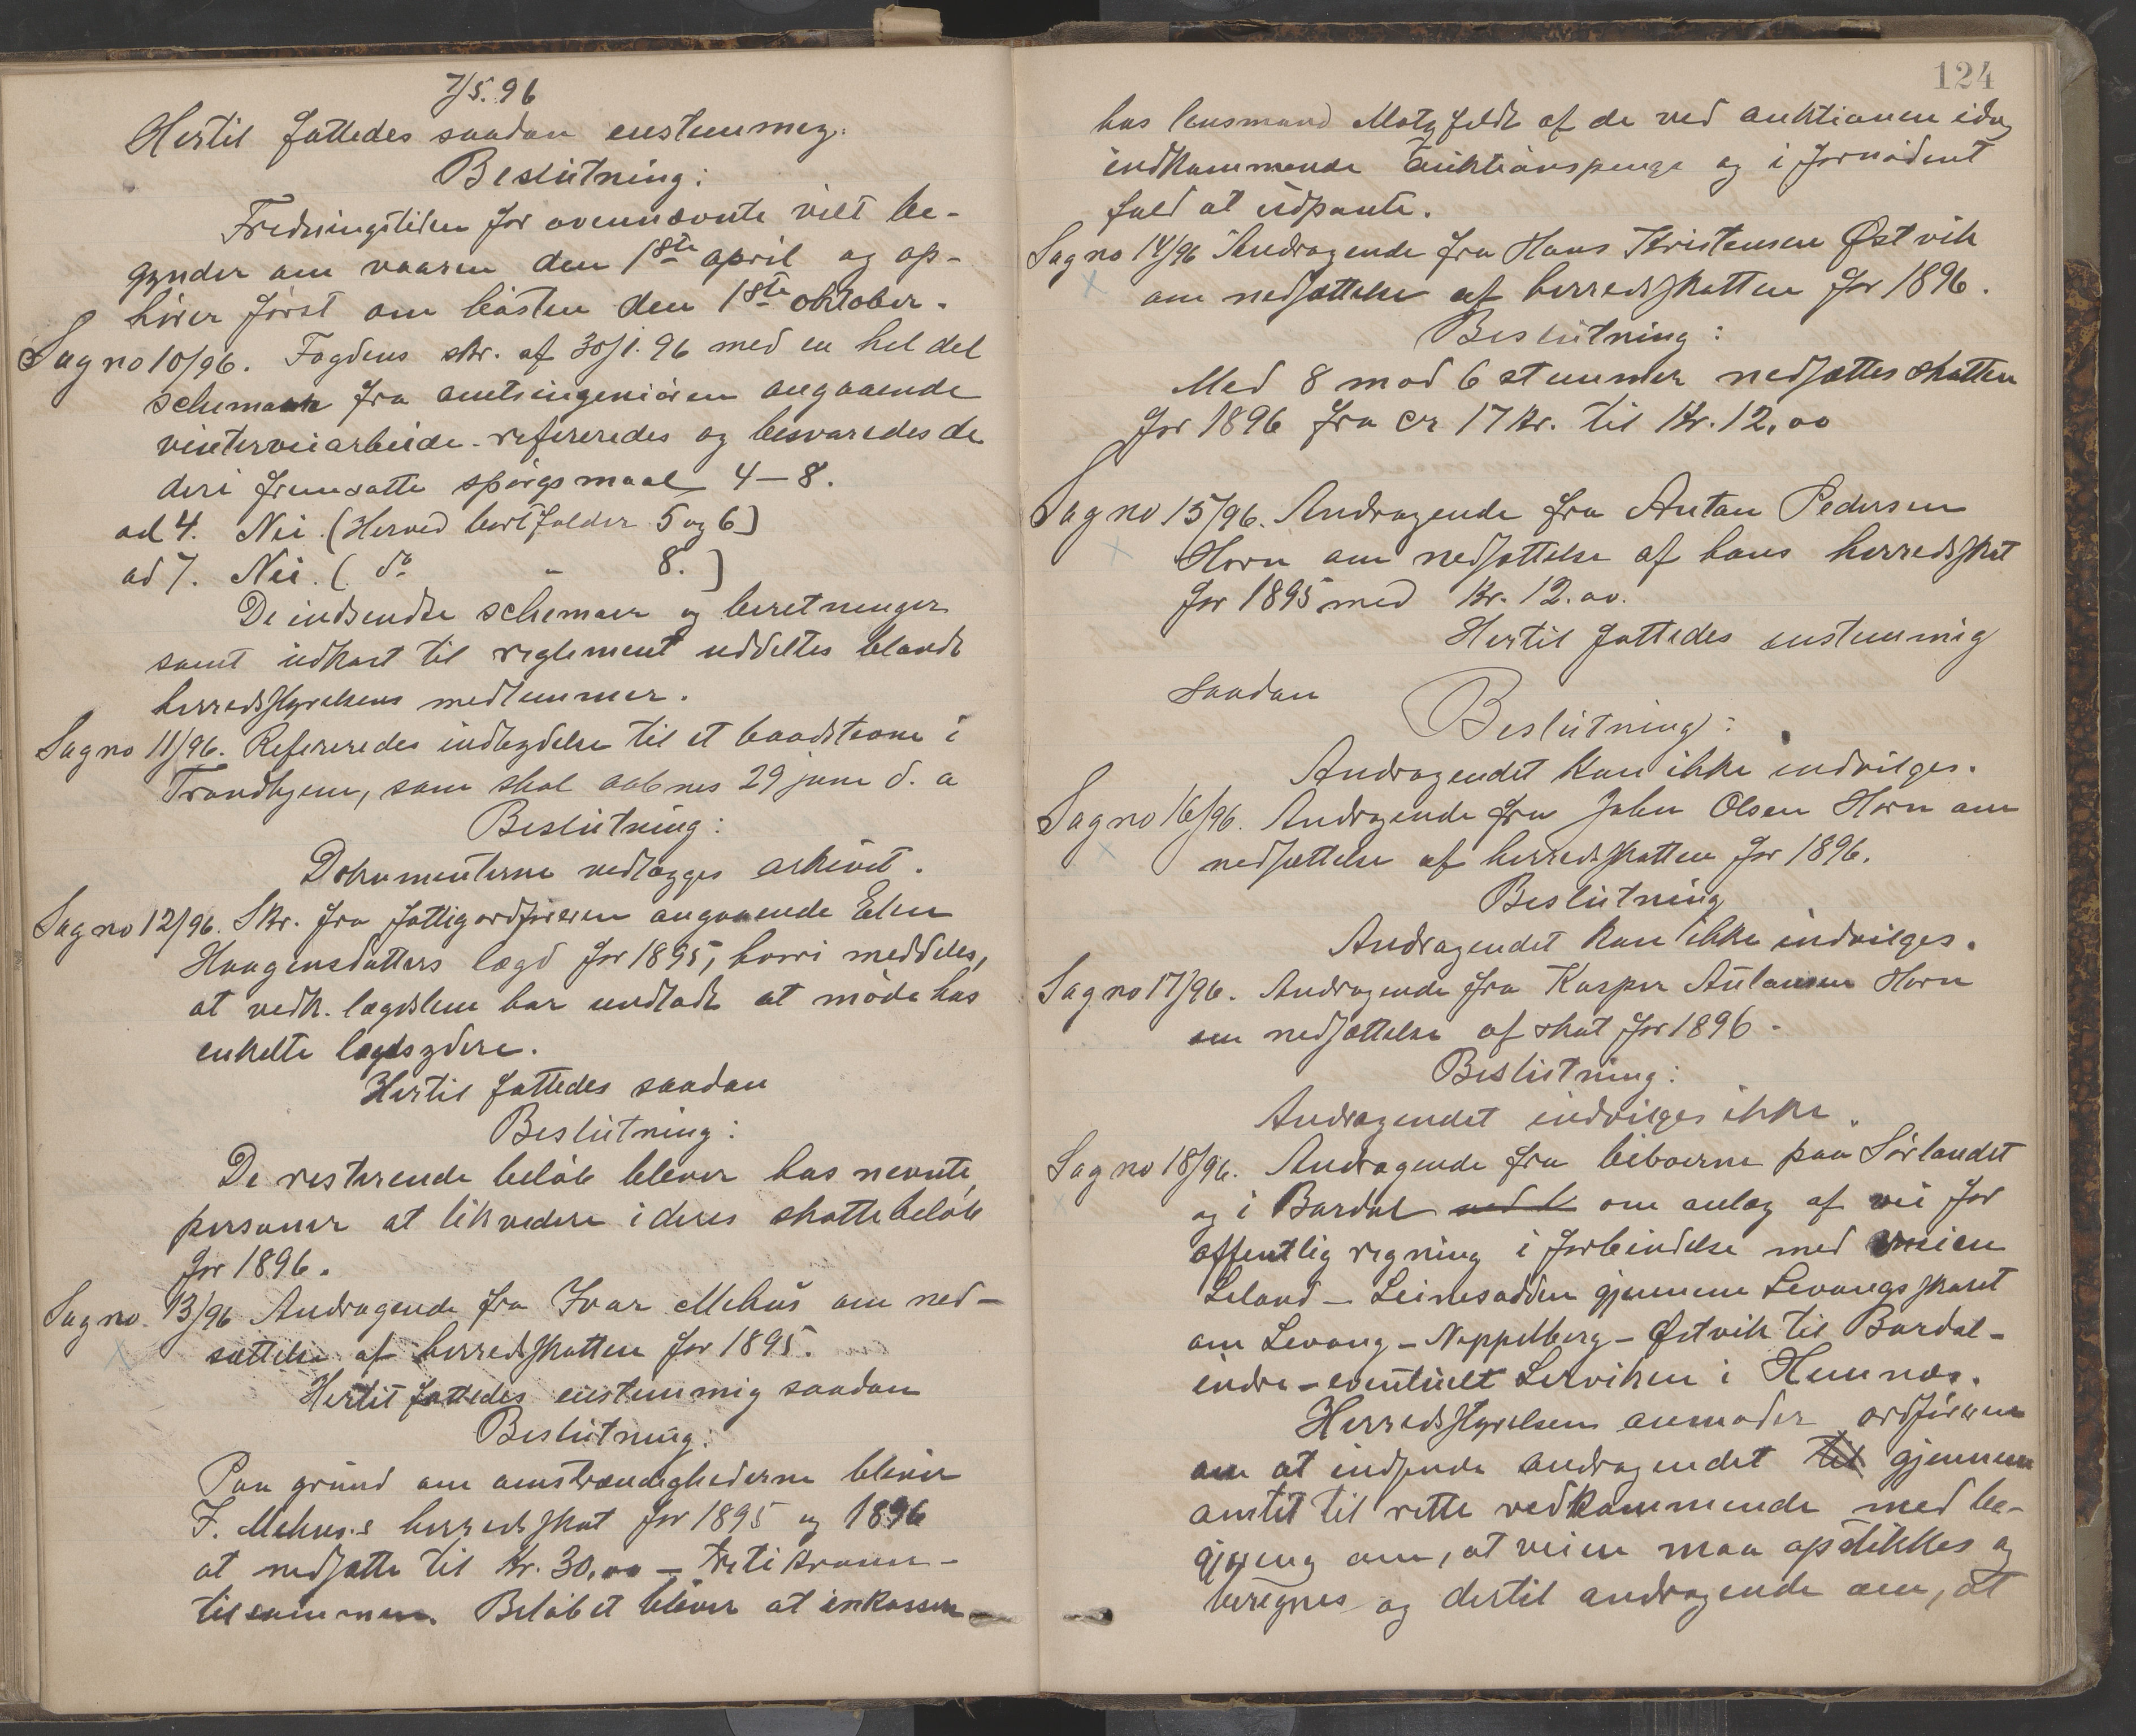 7/5. 96
Hertil fattedes saadan enstemmig:
Beslutning:
Fredningstiden for ovennævnte vilt be-
gynder om vaaren den 1ste april og op-
hører først om høsten den 1ste oktober.
Sag no 10/96. Fogdens skr. af 30/1. 96 med en hel del
schemaer fra amtsingeniøren angaaende
vinterveiarbeide refereredes og besvaredes de
deri fremsatte spørgsmaal 4-8.
ad 4. Nei. (Herved bortfalder 5 og 6)
ad 7. Nei. ( do " 8. )
De indsendte schemaer og beretninger
samt udkast til reglement uddeltes blandt
herredsstyrelsens medlemmer.
Sag no 11/96. Refereredes indbydelse til et landstevne i
Trondhjem, som skal aabnes 29 juni d. a
Beslutning:
Dokumenterne vedlægges arkivet.
Sag no 12/96. Skr. fra fattigordføreren angaaende Elen
Haagensdatters lægd for 1895, hvori meddeles,
at vedk. lægdslem har undladt at møde hos
enkelte lægdsydere.
Hertil fattedes saadan
Beslutning:
De resterende beløb bliver hos nevnte
personer at likvidere i deres skattebeløb
for 1896.
Sag no. 13/96 Andragende fra Ivar Mehus om ned-
sættelse af herredsskatten for 1895.
Hertil fattedes enstemmig saadan
Beslutning:
Paa grund om omstændighederne bliver
I. Mehus.s herredsskat for 1895 og 1896
at nedsætte til Kr. 30,00 - treti kroner -
tilsammen. Beløbet bliver at inkassere
124
hos lensmand Motzfeldt af de ved auktionen idag
indkommende auktionspenge og i fornødent
fald at udpante.
Sag no 14/96 Andragende fra Hans Kristensen Østvik
om nedsættelse af herredsskatten for 1896.
Beslutning:
Med 8 mod 6 stemmer nedsættes skatten
for 1896 fra cr 17 kr. til Kr. 12,00
Sag no 15/96. Andragende fra Antan Pedersen
Horn om nedsættelse af hans herredsskat
for 1895 med Kr. 12.00.
Hertil fattedes enstemmig
saadan
Beslutning:
Andragendet kan ikke indvilges.
Sag no 16/96. Andragende fra Johan Olsen Horn om
nedsættelse af herredsskatten for 1896.
Beslutning
Andragendet kan ikke indvilges.
Sag no 17/96. Andragende fra Kasper Horn
om nedsættelse af skat for 1896.
Beslutning:
Andragendet indvilges ikke.
Sag no 18/96. Andragende fra beboerne paa Sørlandet
og i Bardal om anlæg af vei for
offentlig regning i forbindelse med veien
Leland - Leinesodden gjennem Levangsskaret
om Levang - Nappelberg - Østvik til Bardal -
indre - eventuelt Lerviken i Hemnæs.
Herredsstyrelsen anmoder ordføreren
om at indsende andragendet til gjennem
amtet til rette vedkommende med be-
gjæring om, at veien maa opstikkes og
beregnes og dertil andragende om, at